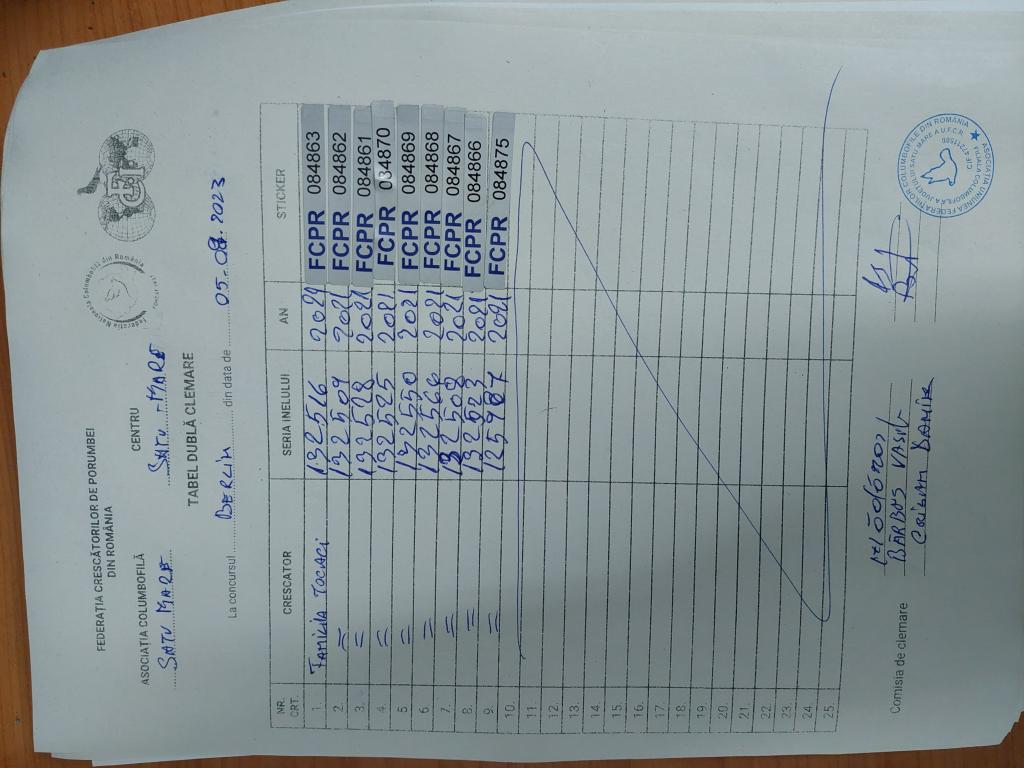 FEDERAȚIA CRESCĂTORILOR DE PORUMBEI
DIN ROMÂNIA
ASOCIAȚIA COLUMBOFILĂ
SATU MARE
CENTRU
SATU-MARE
Federația Națională Columbofilă din România
TABEL DUBLĂ CLEMARE
La concursul BERLIN din data de 05.08.2023
NR. CRT. CRESCATOR SERIA INELULUI AN STICKER
1. Familia TOCACI 132516 2021 FCPR 084863
2. = 132509 2021 FCPR 084862
3. = 132528 2021 FCPR 084861
4. = 132525 2021 FCPR 084870
5. = 132550 2021 FCPR 084869
6. = 132566 2021 FCPR 084868
7. = 132508 2021 FCPR 084867
8. = 132523 2021 FCPR 084866
9. = 125987 2021 FCPR 084875
10.
11.
12.
13.
14.
15.
16.
17.
18.
19.
20.
21.
22.
23.
24.
25.
Comisia de clemare
BĂRBOS VASILE
ASOCIAȚIA UNIUNEA FEDERAȚIILOR COLUMBOFILE DIN ROMÂNIA
FILIALA COLUMBOFILĂ A JUDEȚULUI SATU MARE A U.F.C.R.